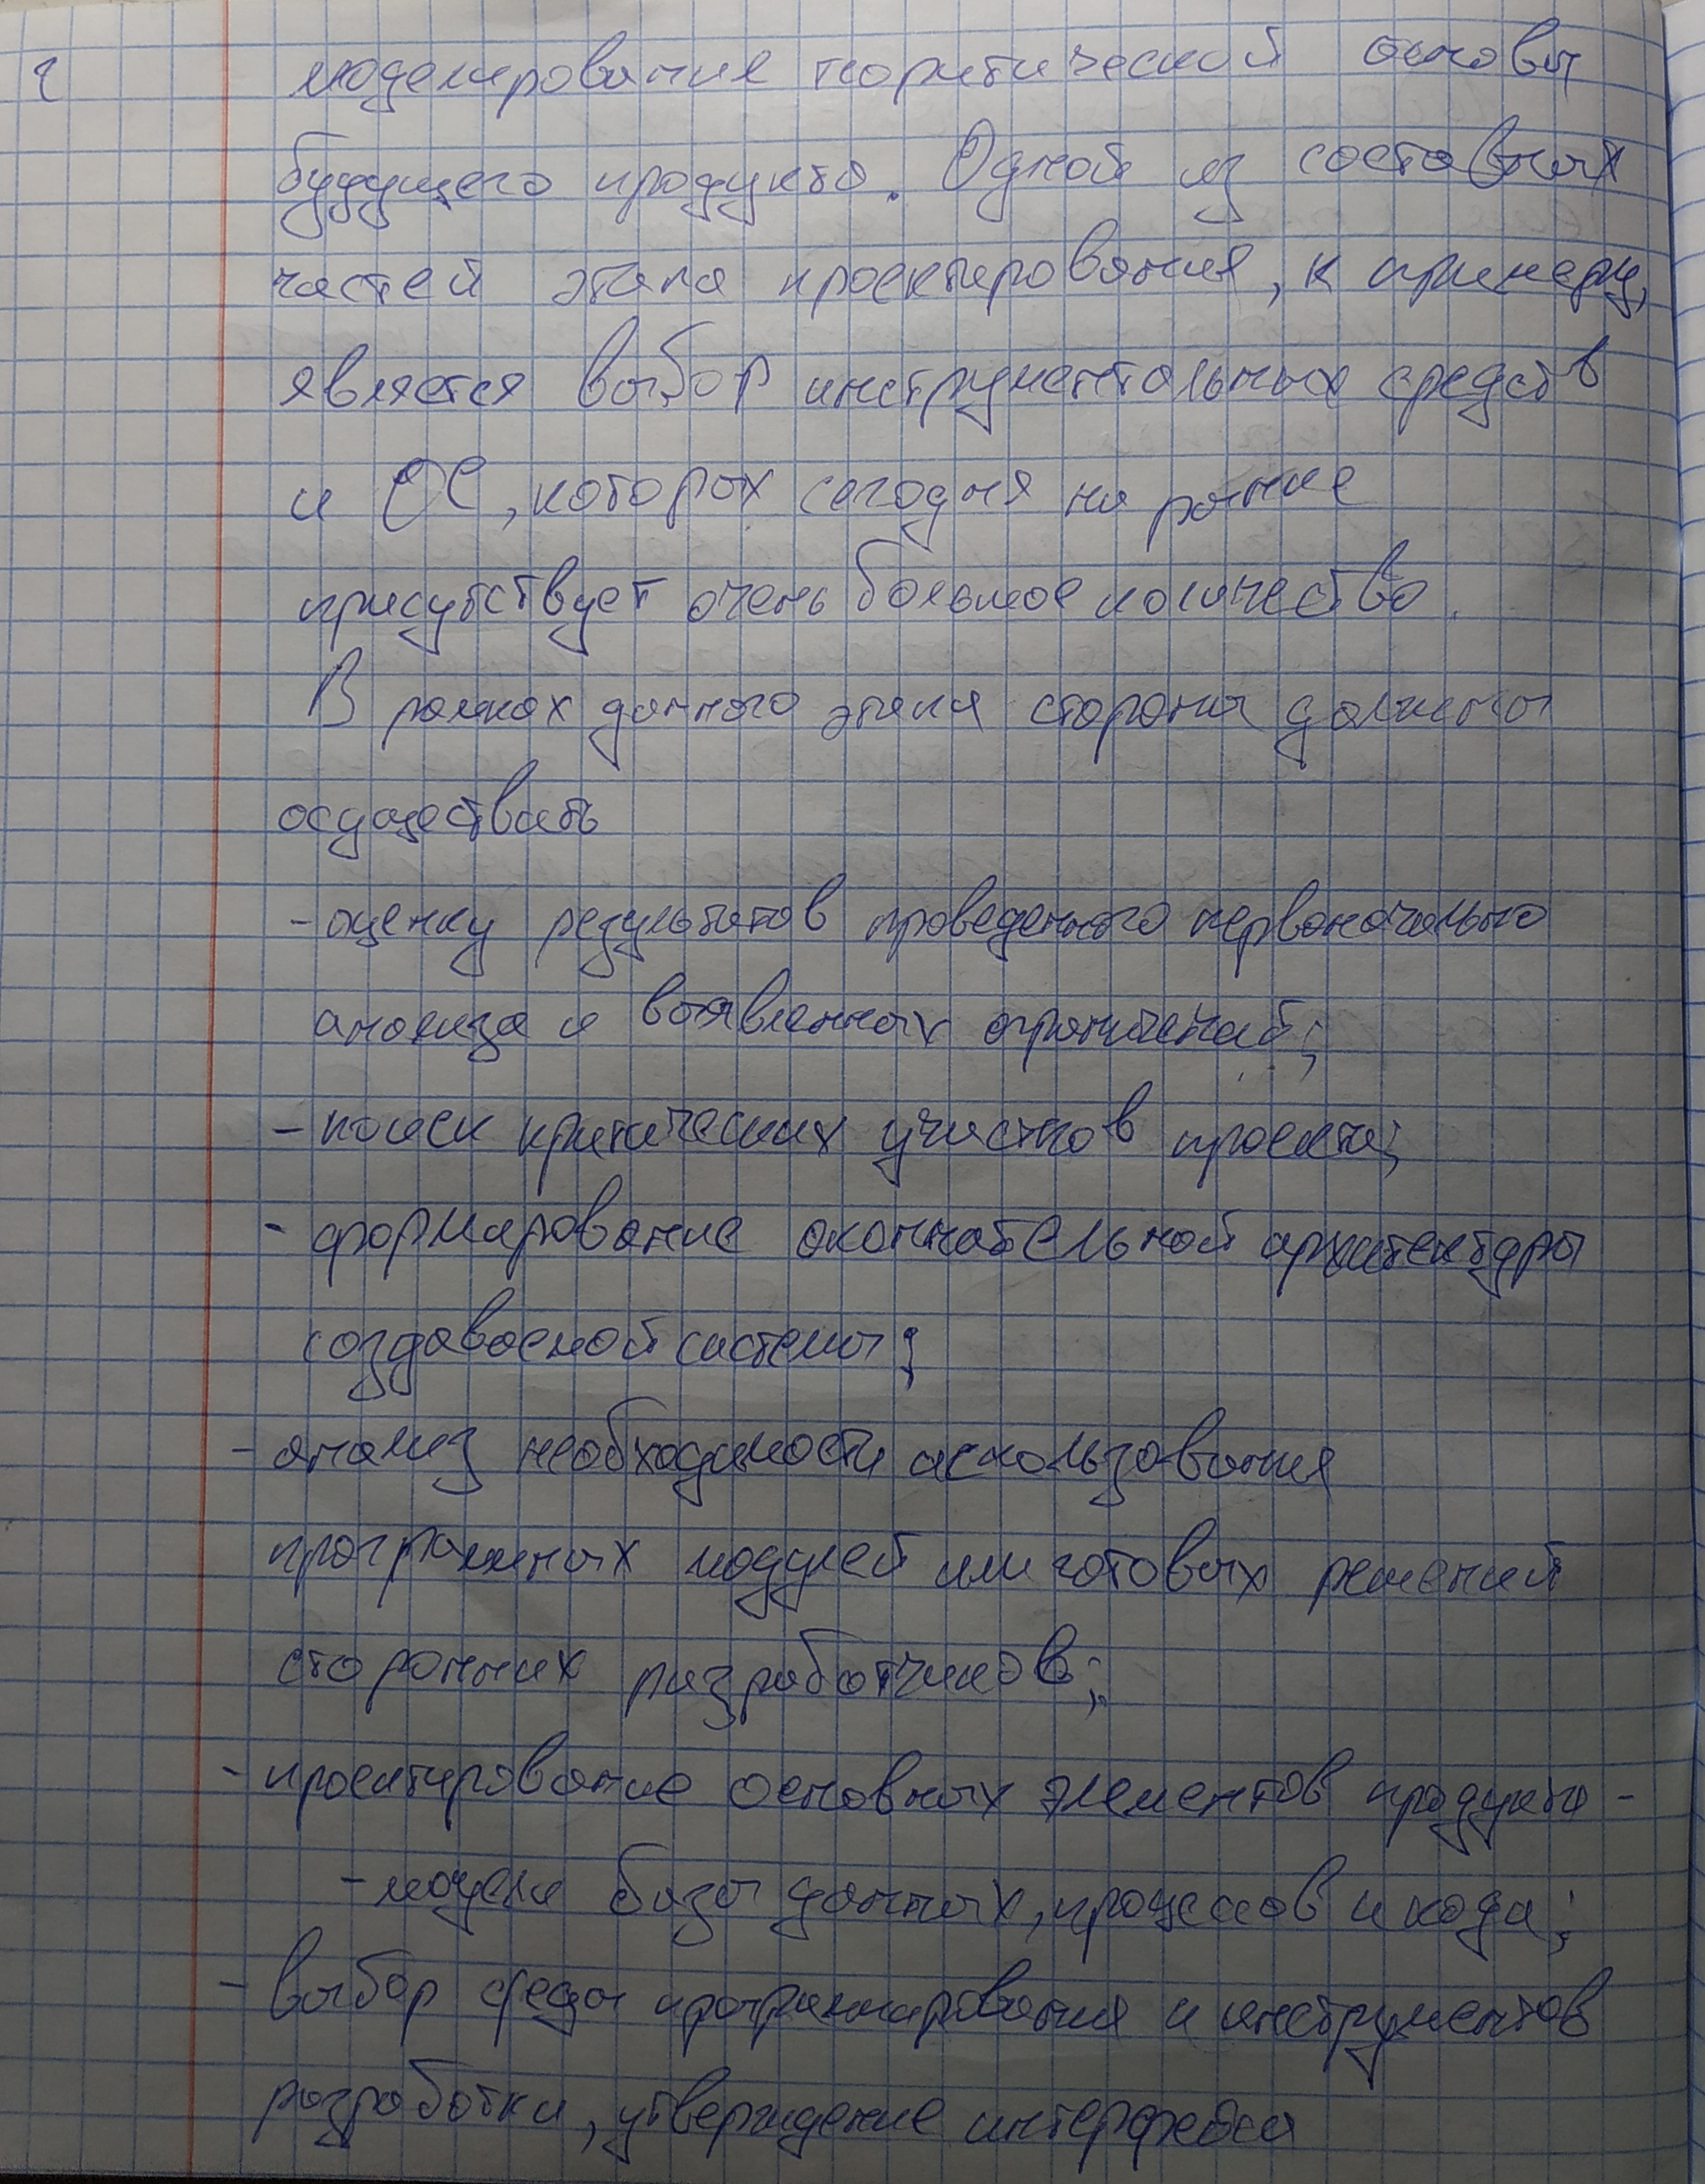 моделирование теоритической основы
будущего продукта. Одной из составных
частей этапа проектирования, к примеру,
является выбор инструментальных средств
и ОС, которых сегодня на рынке
присутствует очень большое количество.
В рамках данного этапа стороны должны
осуществить
- оценку результатов проведенного первоначально
анализа и выявленных ограничений;
- поиск критических участков проекта;
- формирование окончательной архитектуры
создаваемой системы;
- анализ необходимости использования
программных модулей или готовых решений
сторонних разработчиков;
- проектирование основных элементов продукта -
- модели базы данных, процессов и кода;
- выбор среды программирования и инструментов
разработки, утверждение интерфейса